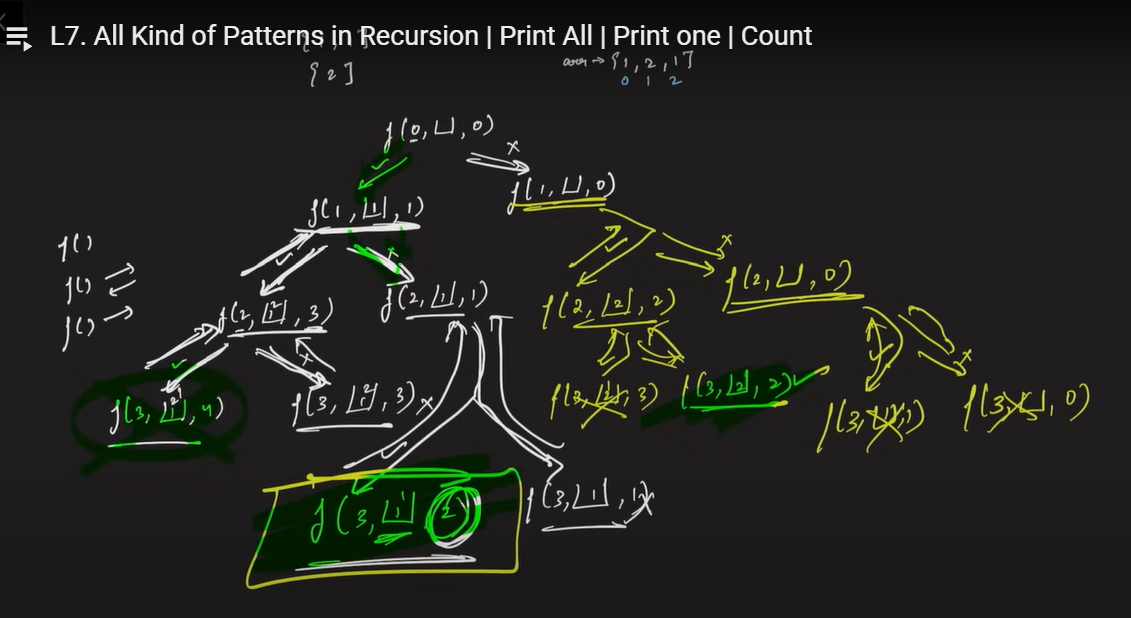 L7. All Kind of Patterns in Recursion | Print All | Print one | Count
{2}
arr → {1, 2, 1}
0 1 2
f(0, ⌊⌋, 0)
✓ x
f(1, ⌊1⌋, 1) f(1, ⌊⌋, 0)
f()
f()
f()
✓ x ✓ x
f(2, ⌊1 2⌋, 3) f(2, ⌊1⌋, 1) f(2, ⌊2⌋, 2) f(2, ⌊⌋, 0)
✓ x x
f(3, ⌊1 2 1⌋, 4) f(3, ⌊1 2⌋, 3) x f(3, 3) f(3, ⌊2⌋, 2) ✓ f(3, 1) f(3, 0)
✓
f(3, ⌊1 1⌋ 2) f(3, ⌊1⌋, 1) x